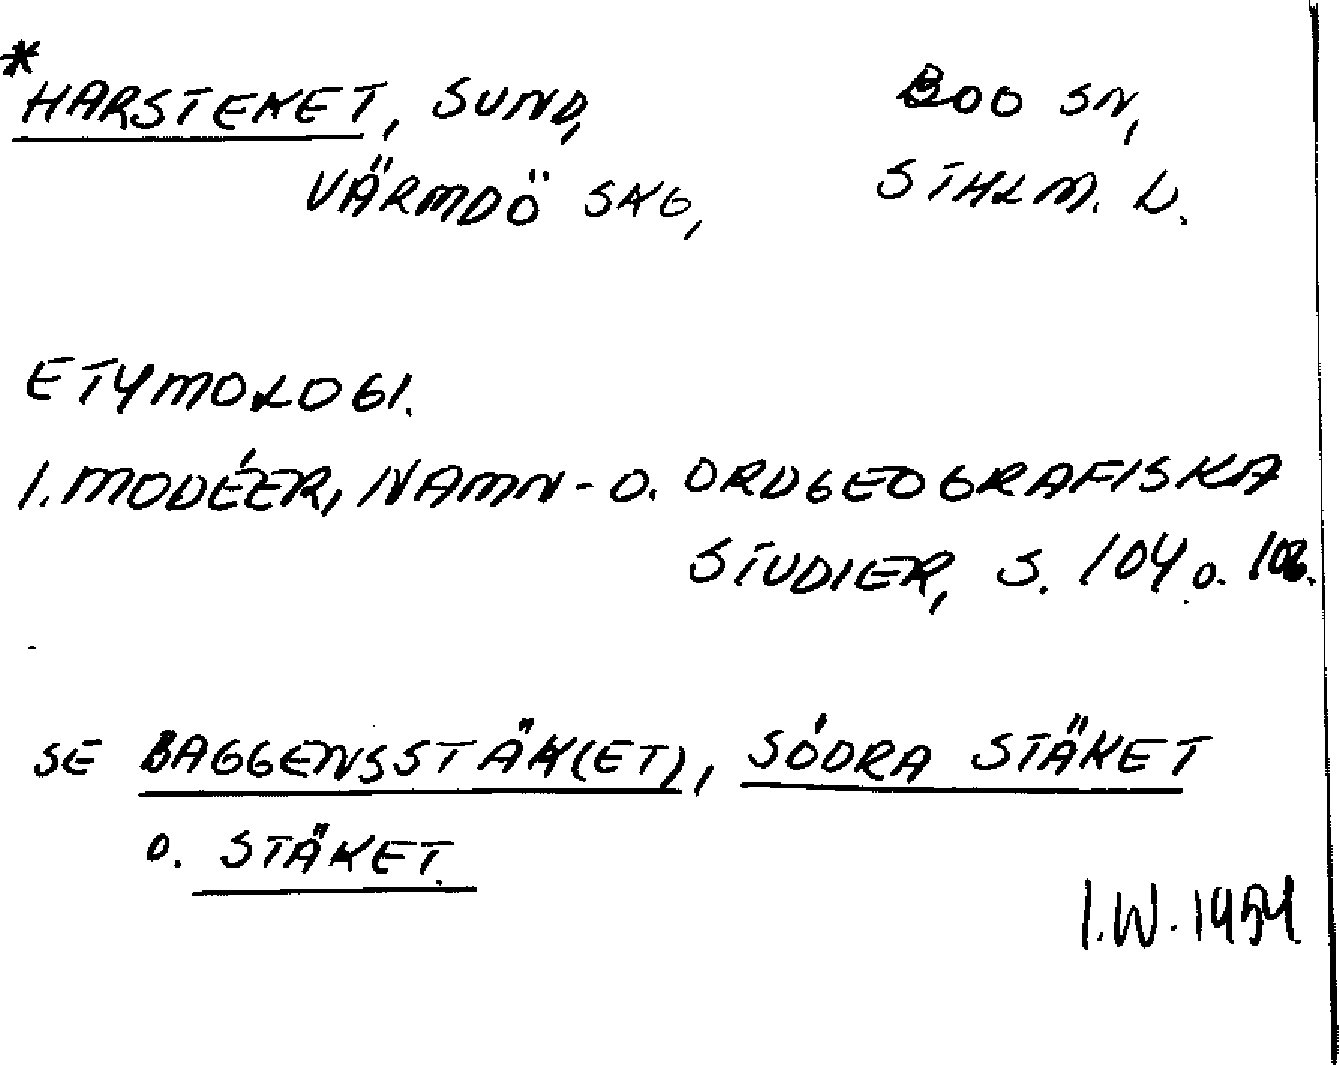 *HARSTEKET, SUND, BOO SN,
VÄRMDÖ SKG, STHLM. L.
ETYMOLOGI.
I. MODÉER, NAMN- O. ORDGEOGRAFISKA
STUDIER, S. 104 o.
SE BAGGENSSTÄK(ET), SÖDRA STÄKET
O. STÄKET.
I.W.